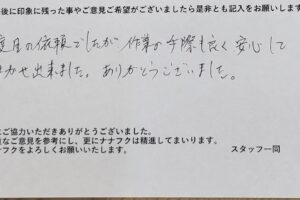 後に印象に残った事やご意見ご希望がございましたら是非とも記入をお願いします
度目の依頼でしたが作業の手際も良く安心して
かせ出来ました。ありがとうございました。
ご協力いただきありがとうございました。
なご意見を参考にし、更にナナフクは精進してまいります。
ナフクをよろしくお願いいたします。
スタッフ一同